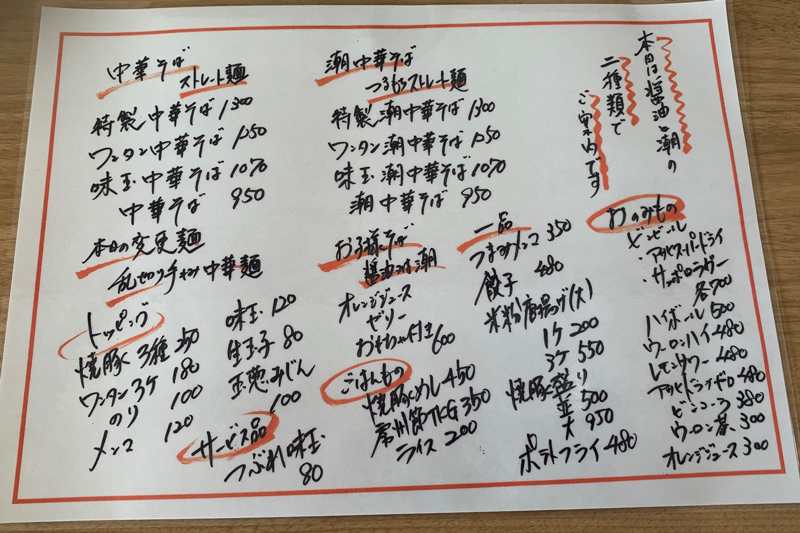 中華そば
ストレート麺
特製中華そば 1300
ワンタン中華そば 1250
味玉中華そば 1070
中華そば 950
本日の変更麺
乱切り手もみ中華麺
トッピング
焼豚 3種 250
ワンタン 3ケ 180
のり 100
メンマ 120
味玉 120
生玉子 80
玉葱みじん 100
サービス品
つぶれ味玉 80
潮中華そば
つるもちストレート麺
特製潮中華そば 1300
ワンタン潮中華そば 1250
味玉潮中華そば 1070
潮中華そば 950
お子様そば
醤油or潮
オレンジジュース
ゼリー
おもちゃ付き 600
ごはんもの
焼豚めし 450
常州節TKG 350
ライス 200
本日は醤油と潮の
二種類で
ご案内です
一品
つまみメンマ 350
餃子 480
米粉唐揚げ(大)
1ケ 200
3ケ 550
焼豚盛り
並 500
大 950
ポテトフライ 480
おのみもの
ビンビール
・アサヒスーパードライ
・サッポロラガー
各700
ハイボール 500
ウーロンハイ 480
レモンサワー 480
アサヒドライゼロ 480
ビンコーラ 380
ウーロン茶 300
オレンジジュース 300